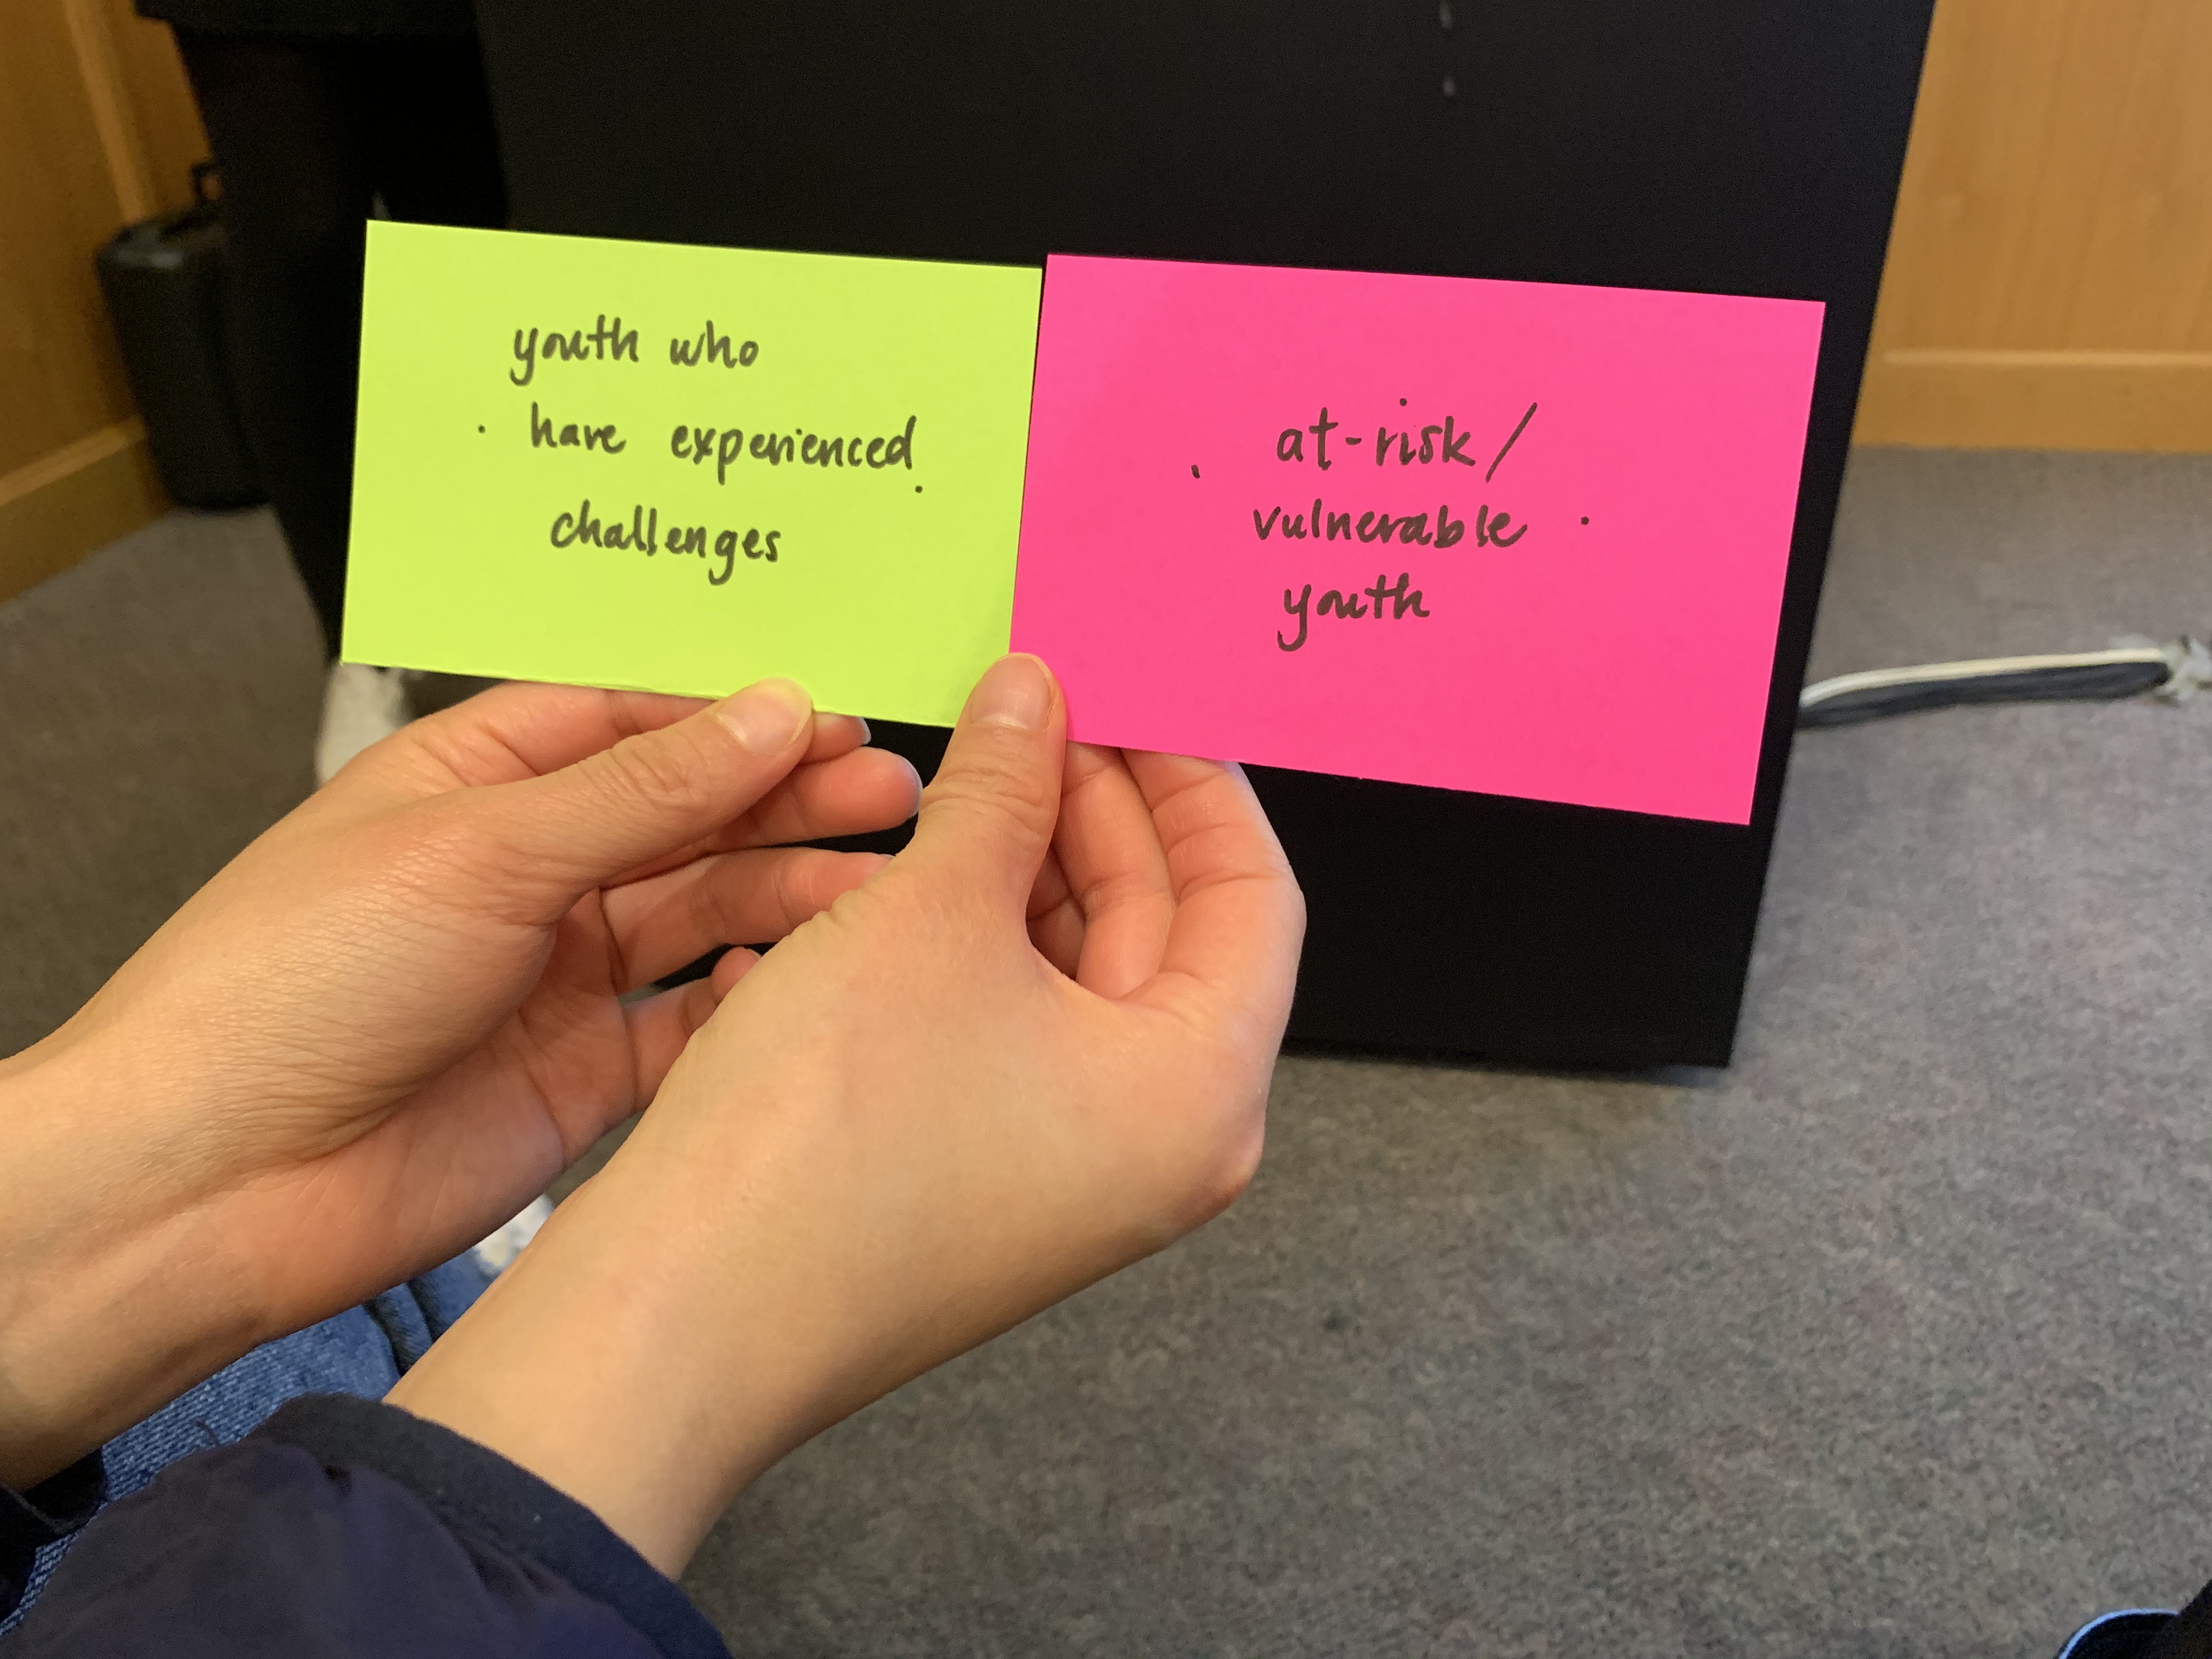 youth who
have experienced
challenges
at-risk/
vulnerable
youth